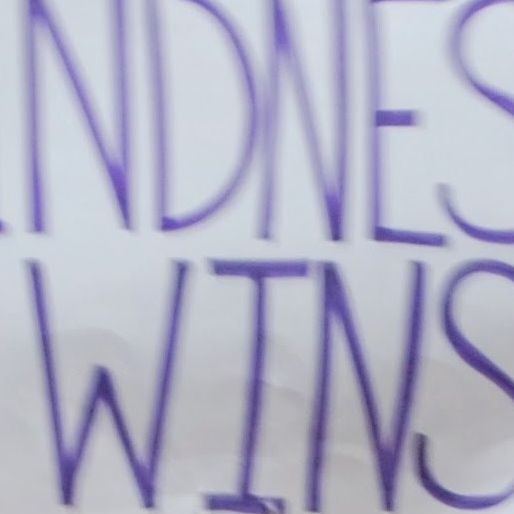 INDNES
WINS